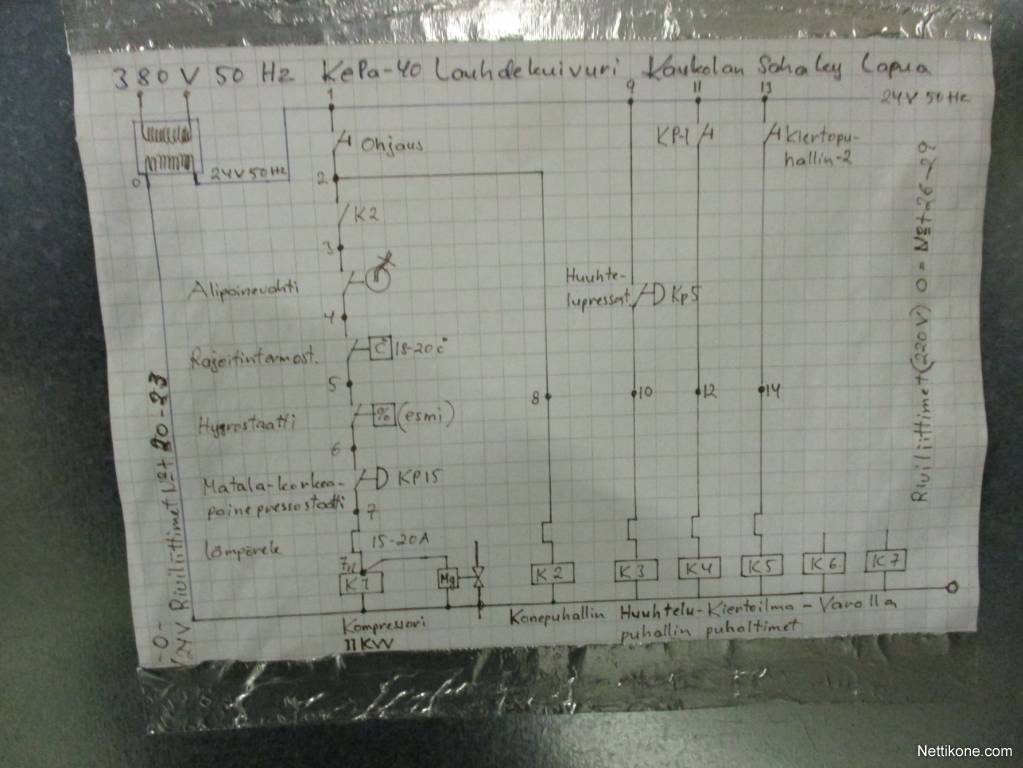 380 V 50 Hz KePa-40 Lauhdekuivuri Kaukolan Saha ky Lapua
1
9
11
13
24V 50Hz
Ohjaus
KP-1
Kiertopu-
hallin-2
0
24V 50Hz
2
K2
3
Alipainevahti
Huuhte-
lupressat.
Kp5
4
Rajoitintermost.
C°
15-20c°
5
8
10
12
14
Hygrostaatti
%
(esmi)
6
Matala-korkea-
paine pressostaatti
KP15
7
Lämpörele
15-20A
K1
Mg
K2
K3
K4
K5
K6
K7
Kompressori
11KW
Konepuhallin
Huuhtelu-
puhallin
Kiertoilma-
puhaltimet
Varolla
-0-
(24V Riviliittimet N:ot 20-23
Riviliittimet (220V) 0 = N:ot 26-29
Nettikone.com